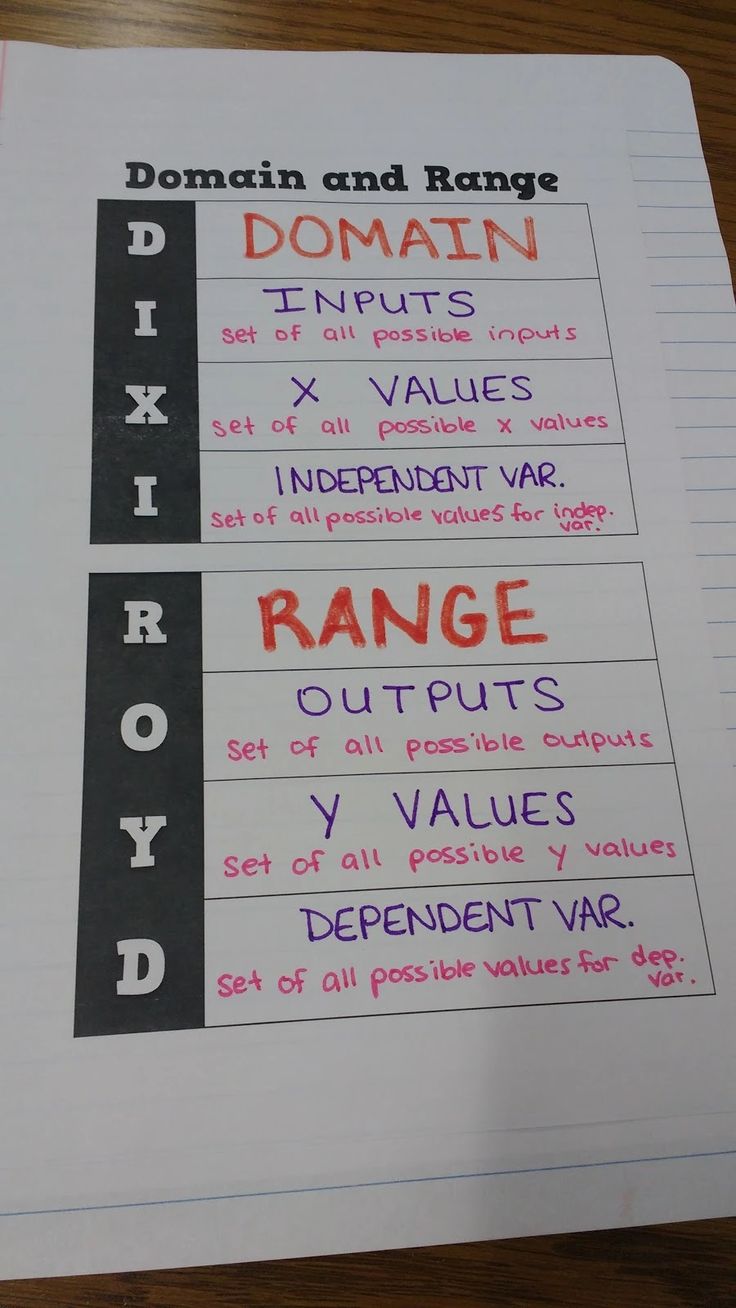 Domain and Range
D
DOMAIN
I
INPUTS
set of all possible inputs
X
X VALUES
set of all possible x values
I
INDEPENDENT VAR.
set of all possible values for indep.
var.
R
RANGE
O
OUTPUTS
set of all possible outputs
Y
Y VALUES
set of all possible y values
D
DEPENDENT VAR.
set of all possible values for dep.
var.